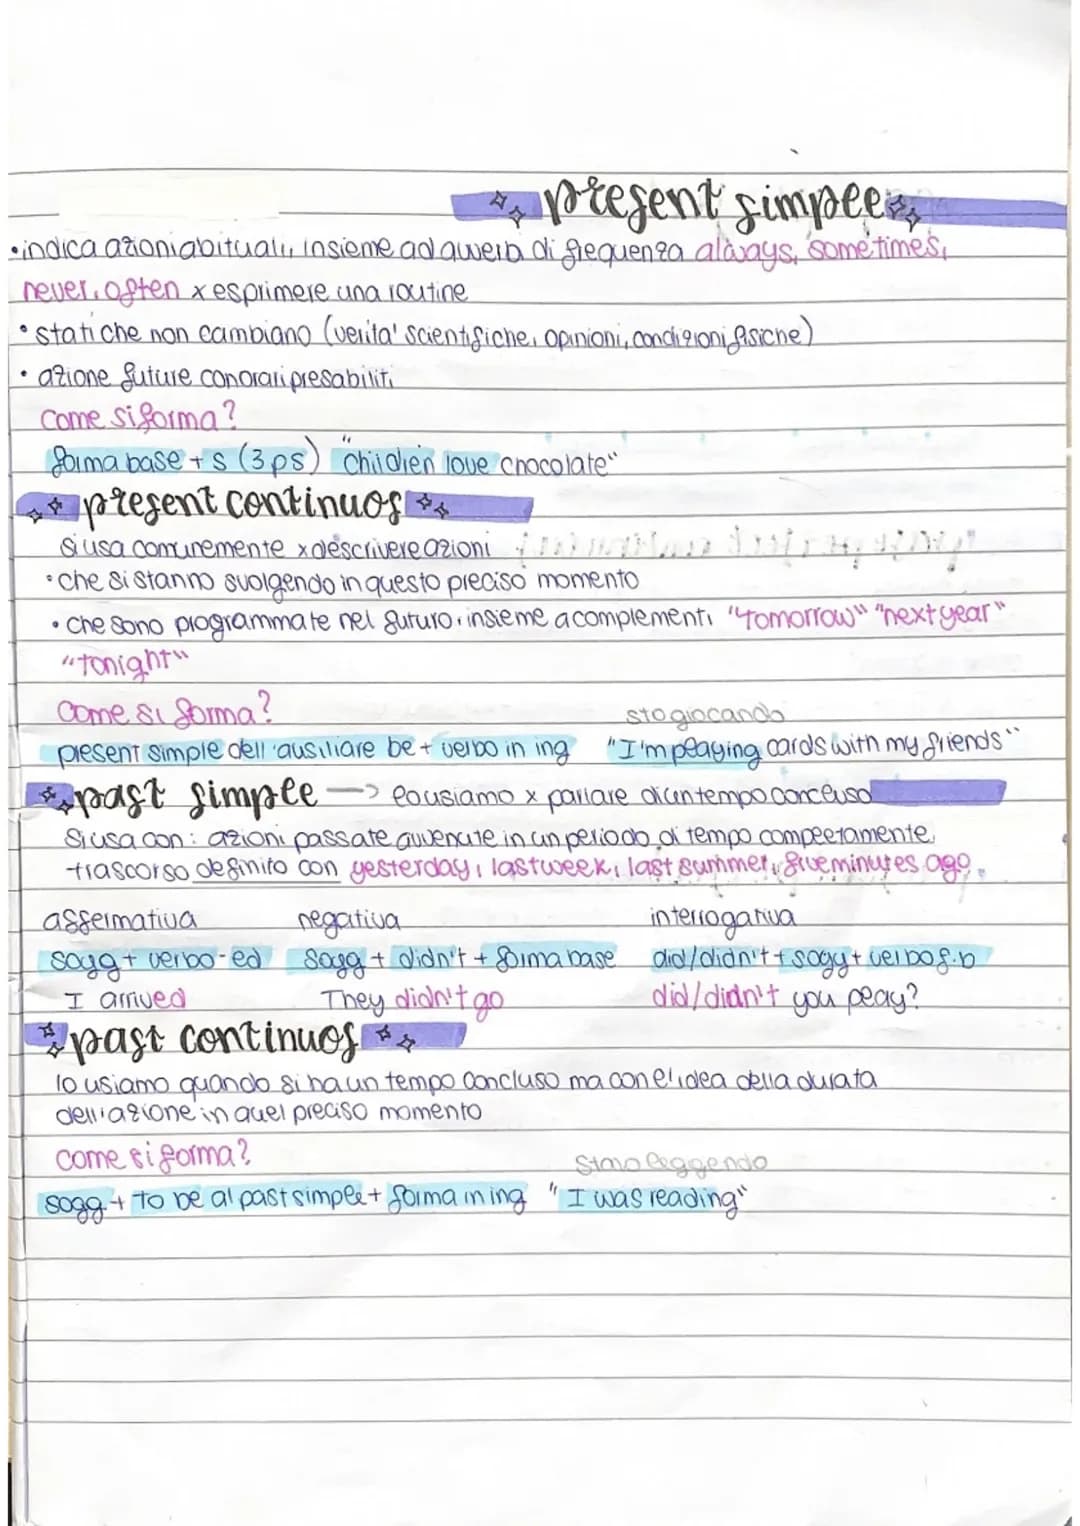 present simple
•indica azioni abituali, insieme ad avverb di frequenza always, sometimes,
never, often x esprimere una routine
• stati che non cambiano (verita' scientifiche, opinioni, condizioni fisiche)
• azione future con orari presabiliti
Come si forma?
forma base + s (3 ps) "children love chocolate"
present continuos
Si usa comunemente x descrivere azioni
• che si stanno svolgendo in questo preciso momento
• che sono programmate nel futuro, insieme a complementi "tomorrow" "next year"
"tonight"
Come si forma?
sto giocando
present simple dell'ausiliare be + verbo in ing "I'm playing cards with my friends"
past simple —> lo usiamo x parlare di un tempo concluso
Si usa con: azioni passate avvenute in un periodo di tempo completamente
trascorso definito con yesterday, last week, last summer, five minutes ago.
affermativa negativa interrogativa
sogg + verbo-ed sogg + didn't + forma base did/didn't + sogg + verbo f.b
I arrived They didn't go did/didn't you play?
past continuos
lo usiamo quando si ha un tempo concluso ma con l'idea della durata
dell'azione in quel preciso momento
Come si forma?
Stavo leggendo
sogg + to be al past simple + forma in ing "I was reading"